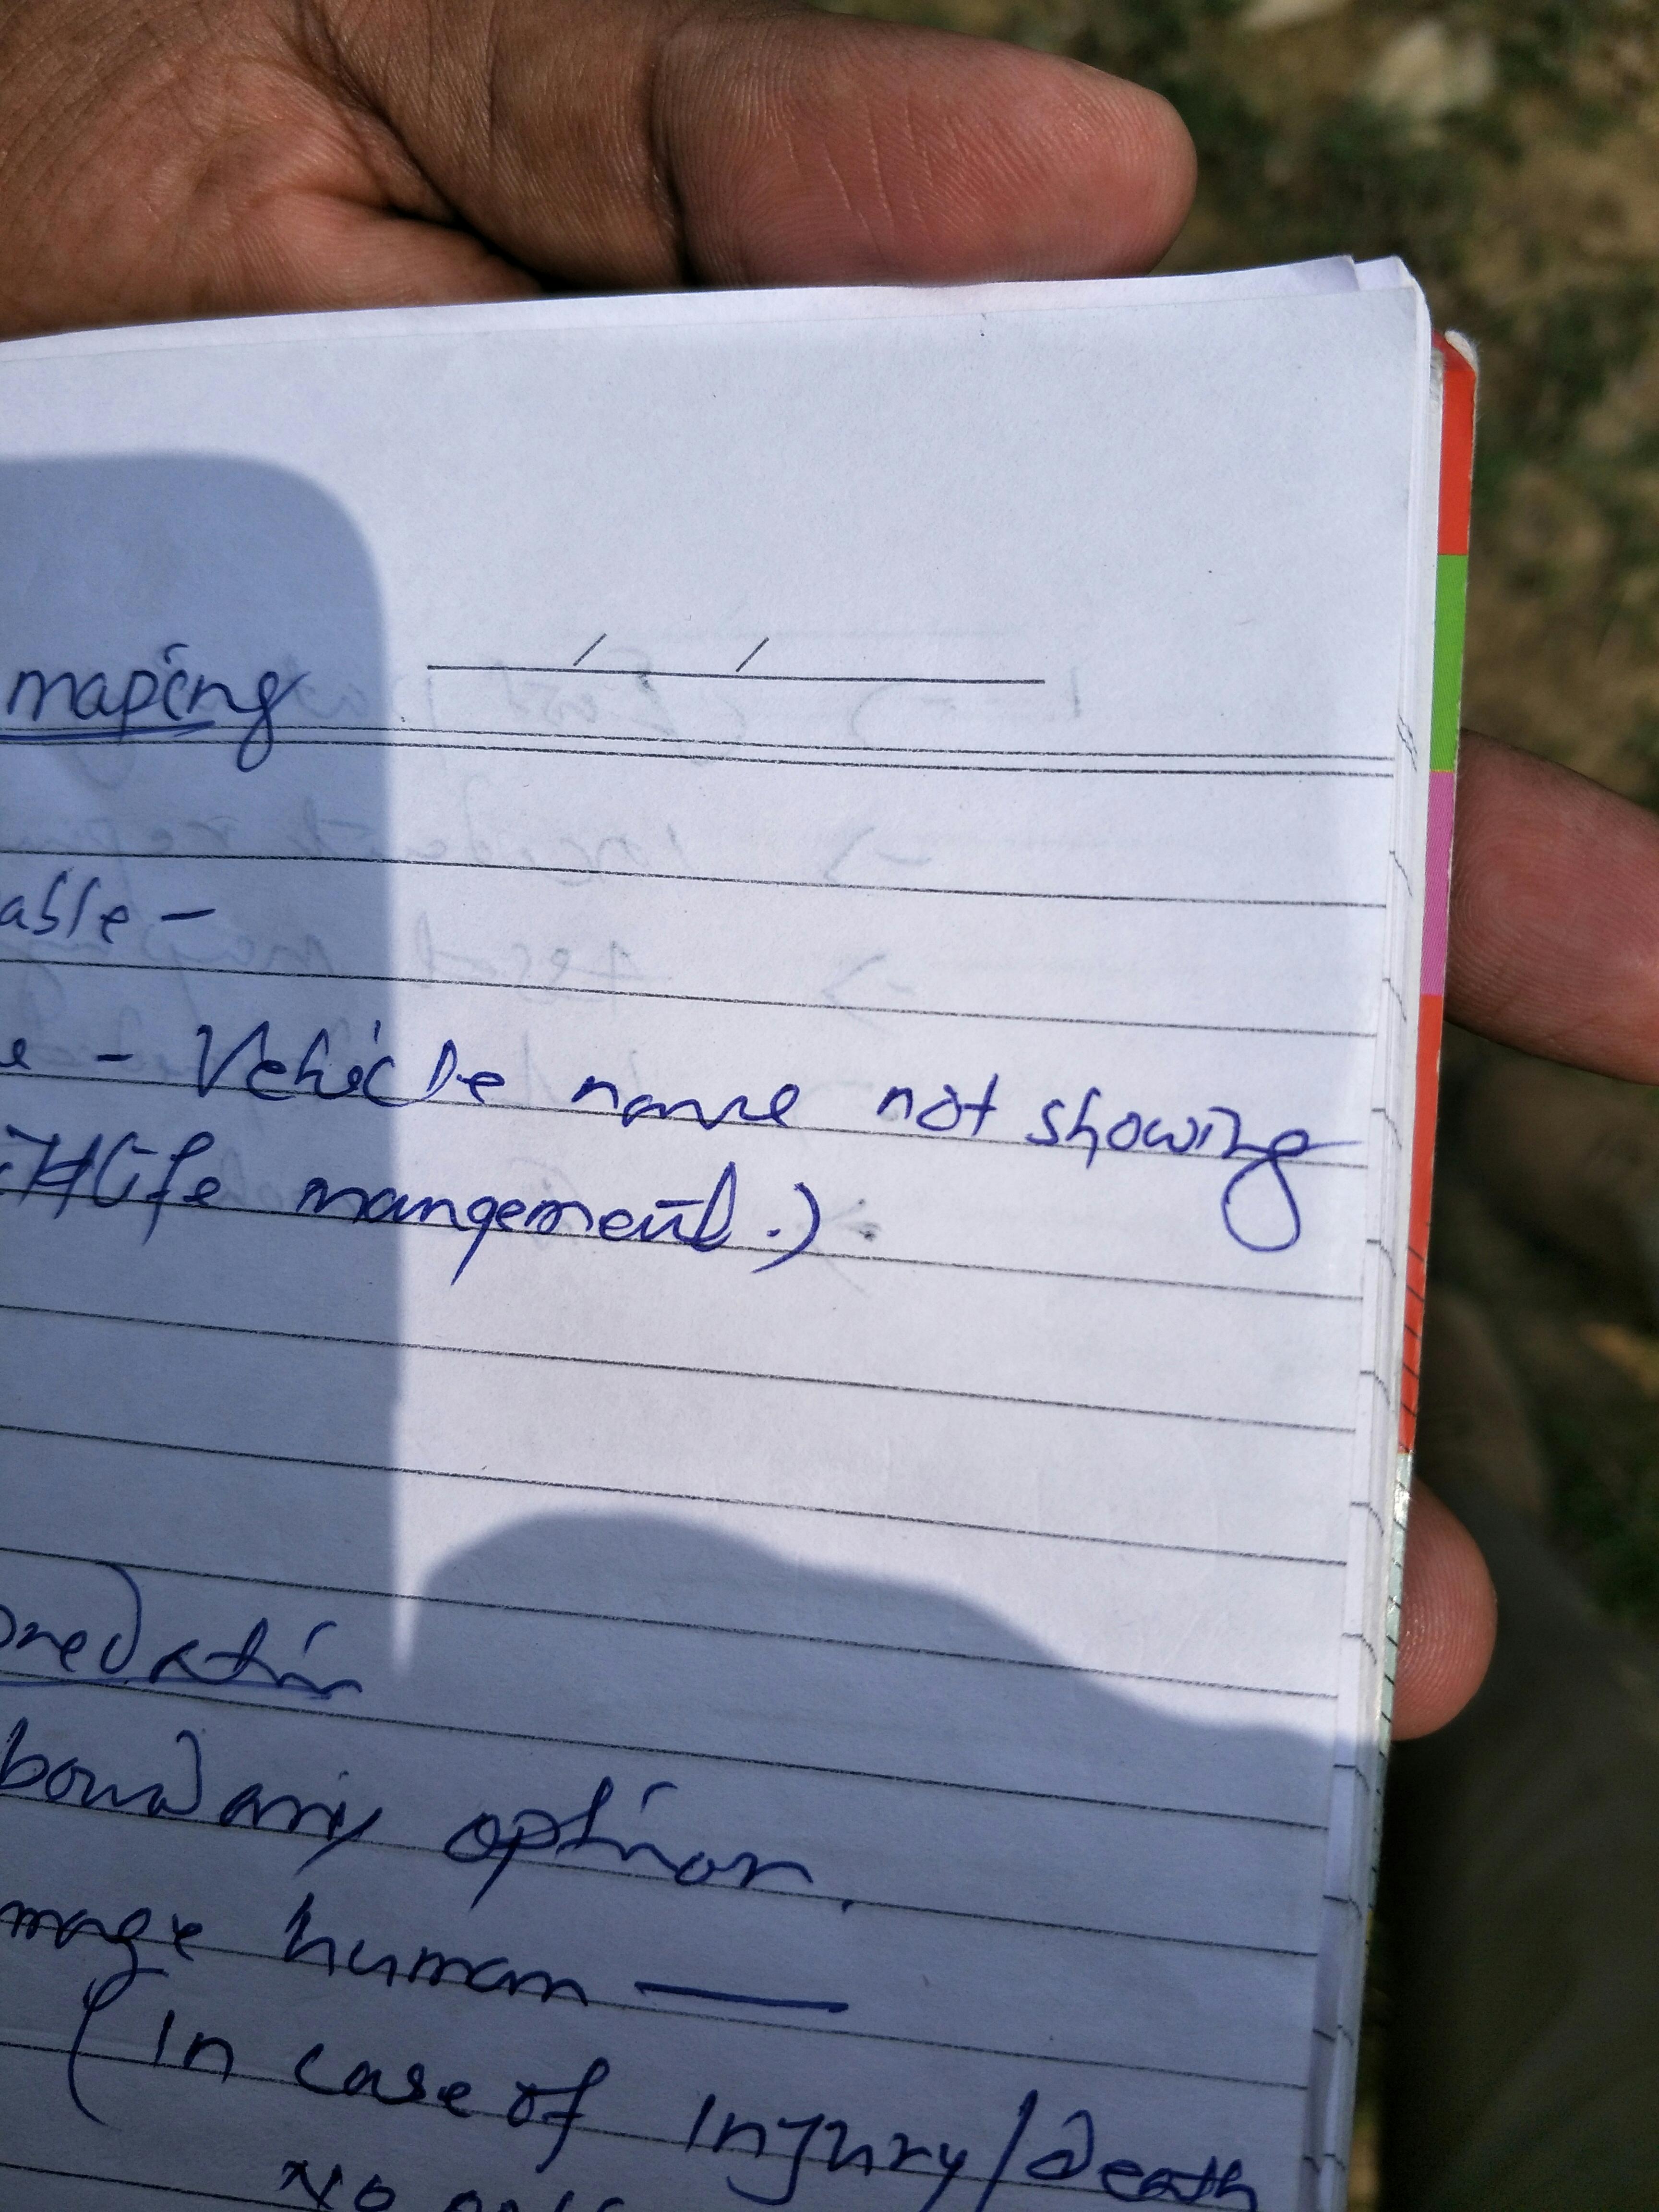 maping
able -
e - Vehicle name not showing
life mangement.)
boundary option.
human —
(In case of Injury/death
No